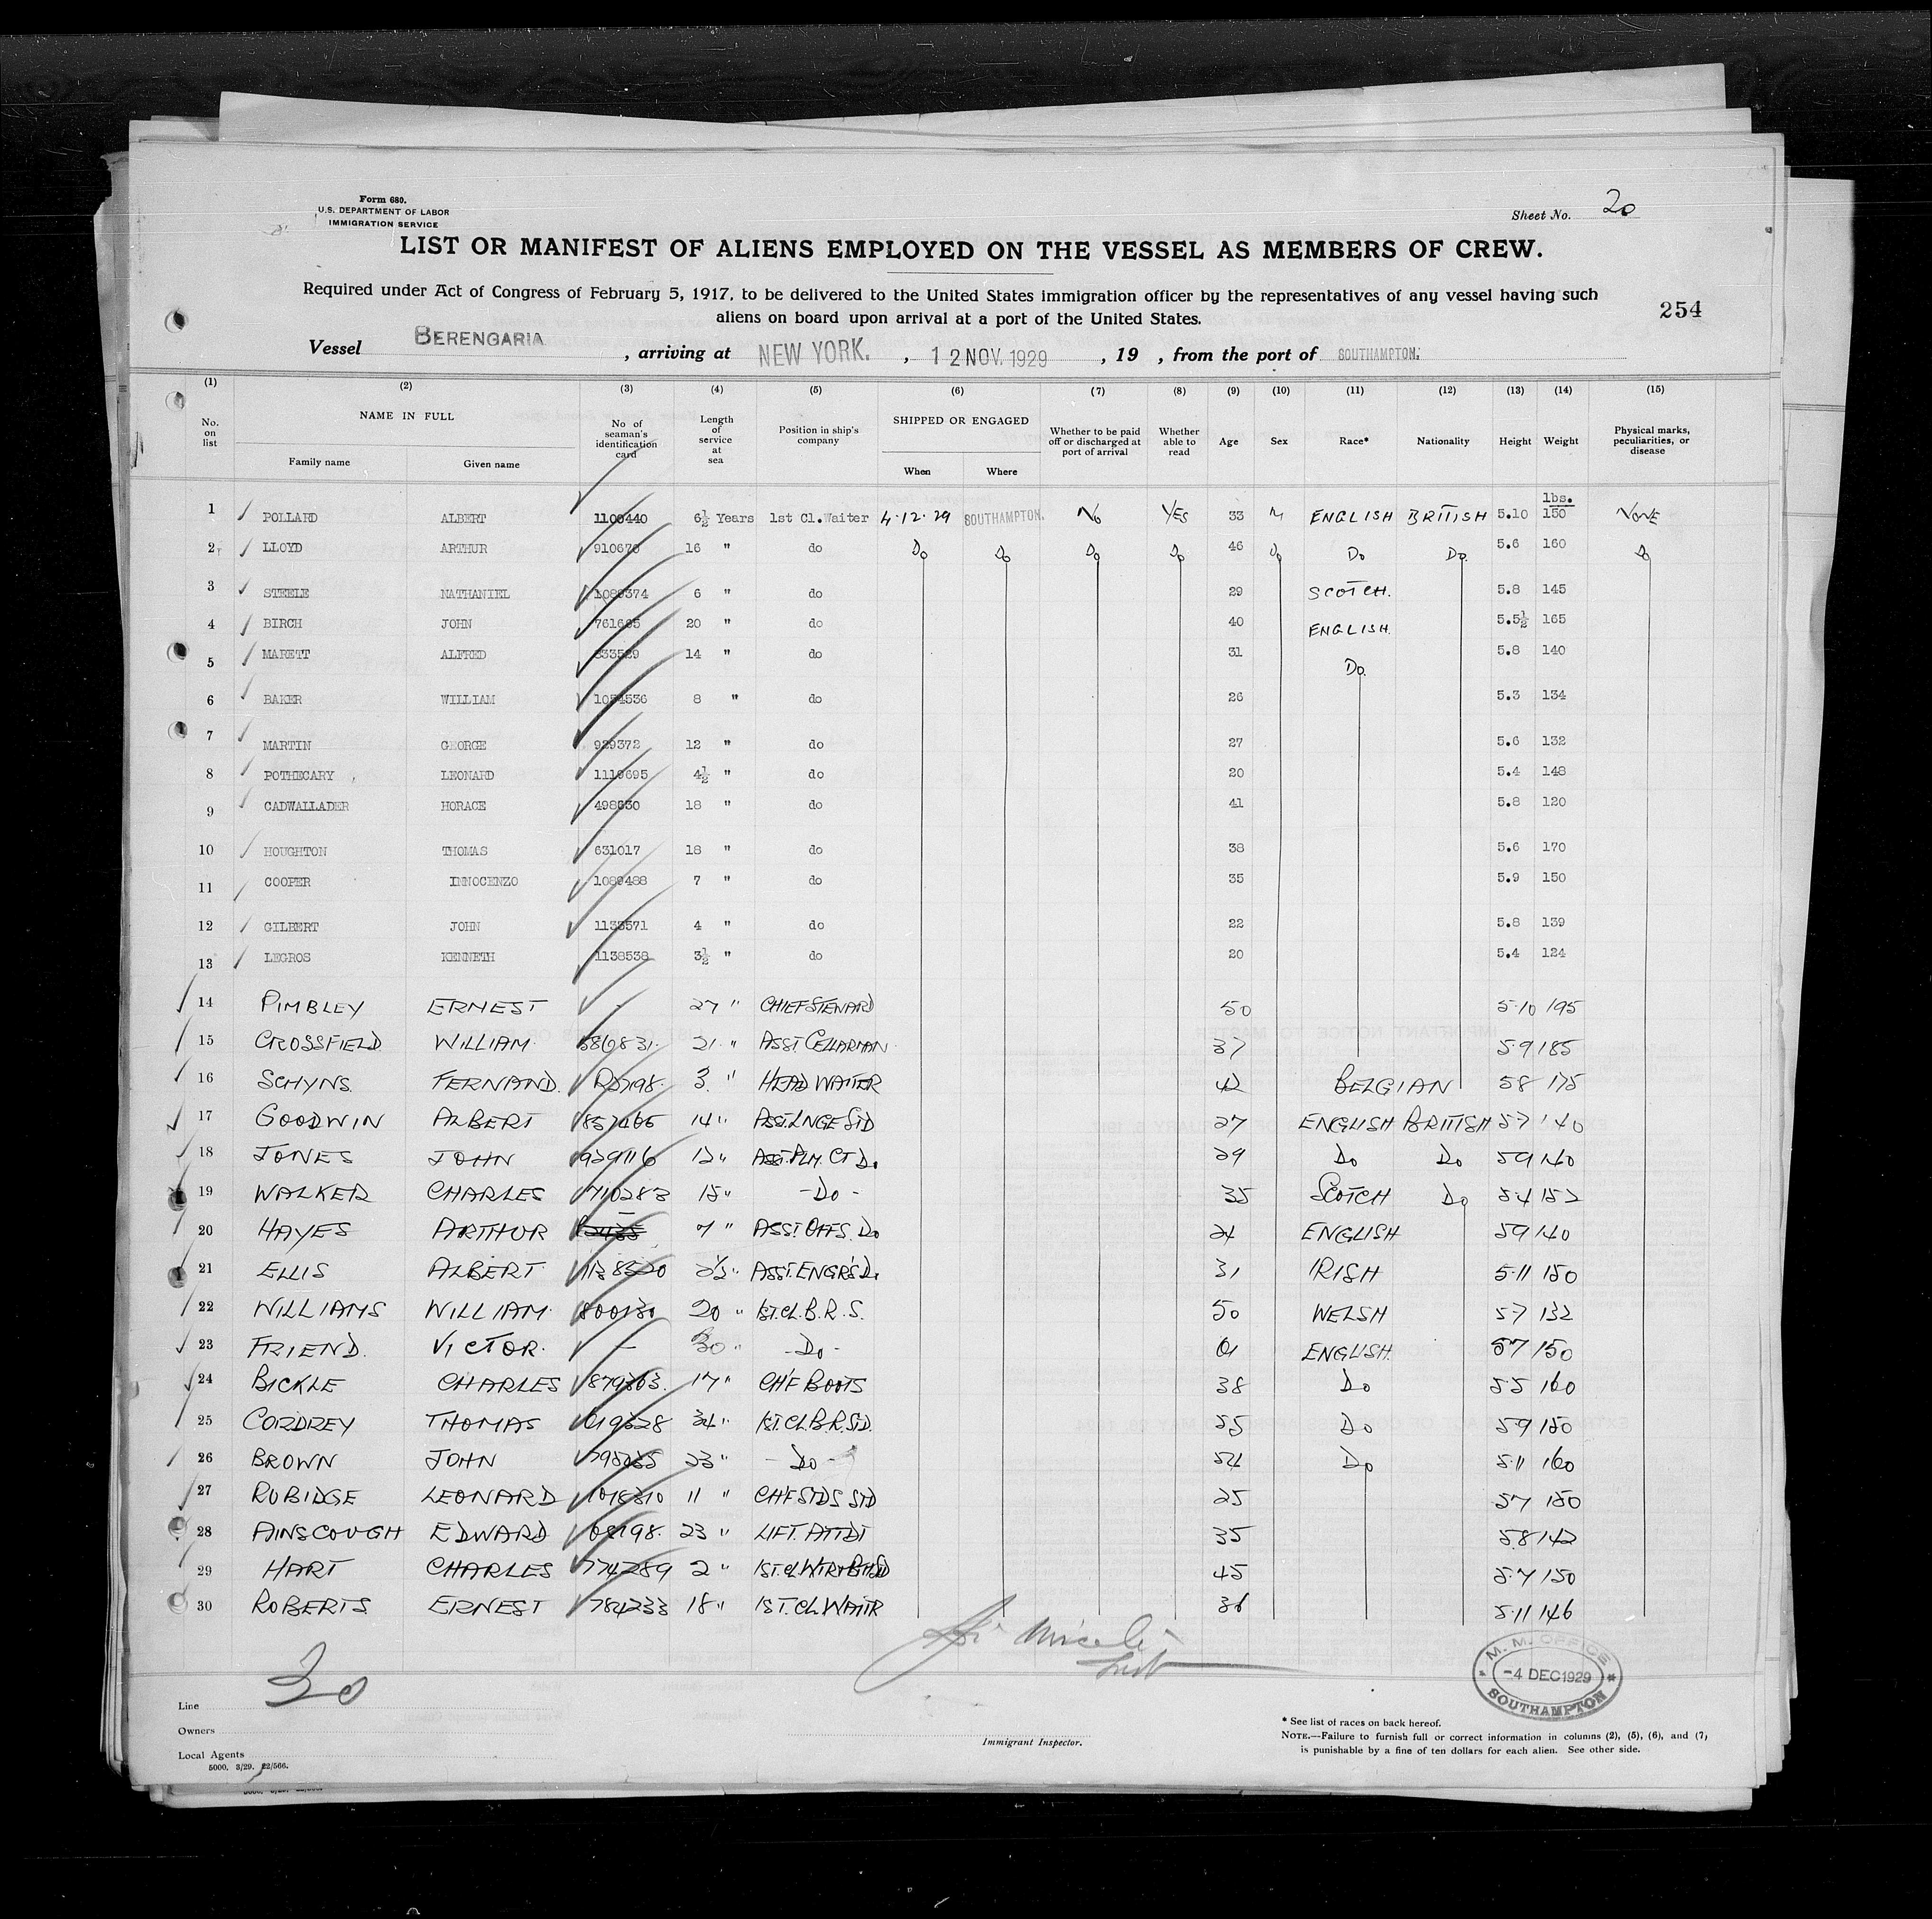 Form 680.
U.S. DEPARTMENT OF LABOR
IMMIGRATION SERVICE
Sheet No. 20
LIST OR MANIFEST OF ALIENS EMPLOYED ON THE VESSEL AS MEMBERS OF CREW.
Required under Act of Congress of February 5, 1917, to be delivered to the United States immigration officer by the representatives of any vessel having such
aliens on board upon arrival at a port of the United States.
254
Vessel BERENGARIA , arriving at NEW YORK. , 12 NOV. 1929 , 19 , from the port of SOUTHAMPTON.
(1) (2) (3) (4) (5) (6) (7) (8) (9) (10) (11) (12) (13) (14) (15)
No. on list NAME IN FULL Family name Given name No of seaman's identification card Length of service at sea Position in ship's company SHIPPED OR ENGAGED When Where Whether to be paid off or discharged at port of arrival Whether able to read Age Sex Race* Nationality Height Weight Physical marks, peculiarities, or disease
lbs.
1 POLLARD ALBERT 1100440 6½ Years 1st Cl.Waiter 4.12.29 SOUTHAMPTON. No YES 33 M ENGLISH BRITISH 5.10 150 NONE
2 LLOYD ARTHUR 16 " do Do Do Do Do 46 Do Do Do 5.6 160 Do
3 STEELE NATHANIEL 6 " do 29 SCOTCH. 5.8 145
4 BIRCH JOHN 20 " do 40 ENGLISH. 5.5½ 165
5 MARETT ALFRED 14 " do 31 Do. 5.8 140
6 BAKER WILLIAM 1054536 8 " do 26 5.3 134
7 MARTIN GEORGE 929372 12 " do 27 5.6 132
8 POTHECARY LEONARD 1119695 4½ " do 20 5.4 148
9 CADWALLADER HORACE 18 " do 41 5.8 120
10 HOUGHTON THOMAS 631017 18 " do 38 5.6 170
11 COOPER INNOCENZO 1089488 7 " do 35 5.9 150
12 GILBERT JOHN 1133571 4 " do 22 5.8 139
13 LEGROS KENNETH 1138538 3½ " do 20 5.4 124
14 PIMBLEY ERNEST - 27 " CHIEF STEWARD 50 5.10 195
15 CROSSFIELD WILLIAM. 586831. 21 " ASST CELLARMAN 37 5.9 185
16 SCHYNS. FERNAND. 3. " HEAD WAITER 42 BELGIAN 5 8 175
17 GOODWIN ALBERT 14 " ASST.LNGE STD 27 ENGLISH BRITISH 5.7 140
18 JONES JOHN 929116 12 " ASST.PLM. CT Do 29 Do Do 5.9 140
19 WALKER CHARLES 710283 15 " -Do- 35 SCOTCH Do 5.4 152
20 HAYES ARTHUR 7 " ASST. OFFS. Do 24 ENGLISH 5.9 140
21 ELLIS ALBERT 2½ " ASST. ENGRS Do. 31 IRISH 5.11 150
22 WILLIAMS WILLIAM. 800130 20 " 1ST.CL.B.R.S. 50 WELSH 5.7 132
23 FRIEND. VICTOR. - 30 " -Do- 61 ENGLISH. 5.7 150
24 BICKLE CHARLES 879303. 17 " CH'F BOOTS 38 Do 5.5 160
25 CORDREY THOMAS 619328 34 " 1ST.CL.B.R.STD. 55 Do 5.9 150
26 BROWN JOHN 23 " -Do- 54 Do 5.11 160
27 RUBIDGE LEONARD 1018310 11 " CHF STDS STD 25 5.7 150
28 AINSCOUGH EDWARD 23 " LIFT. ATTDT 35 5.8 142
29 HART CHARLES 774289 2 " 45 5.7 150
30 ROBERTS ERNEST 784233 18 " 1ST.CL.WAITR 36 5.11 146
30
M. M. OFFICE
-4 DEC 1929
SOUTHAMPTON
Line
Owners
Local Agents
5000. 3/29. 22/566.
Immigrant Inspector.
* See list of races on back hereof.
NOTE.—Failure to furnish full or correct information in columns (2), (5), (6), and (7)
is punishable by a fine of ten dollars for each alien. See other side.